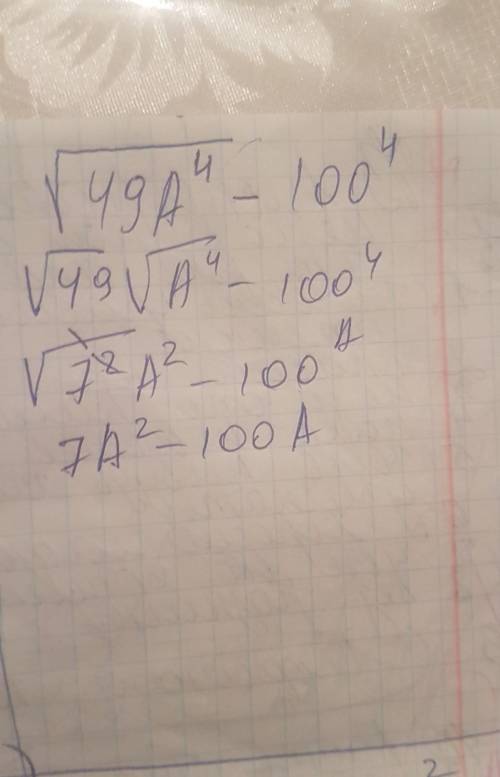 √49A⁴ - 100⁴
√49√A⁴ - 100⁴
√7²A² - 100ᴬ
7A² - 100A
2